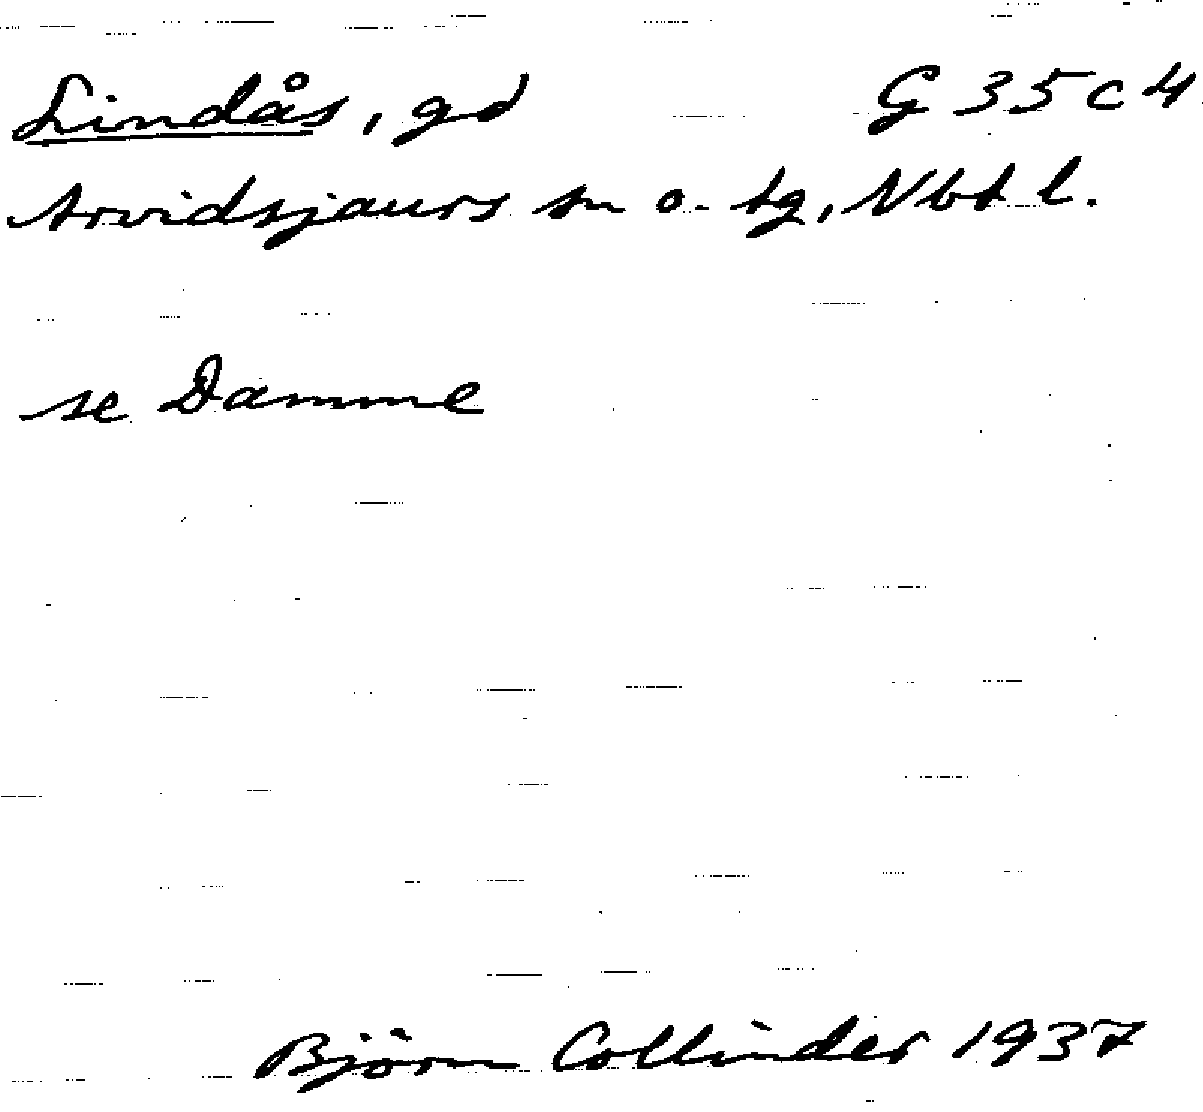 Lindås, gd G 35 c 4
Arvidsjaurs sn o. tg, Nbt l.
se Damme
Björn Collinder 1937